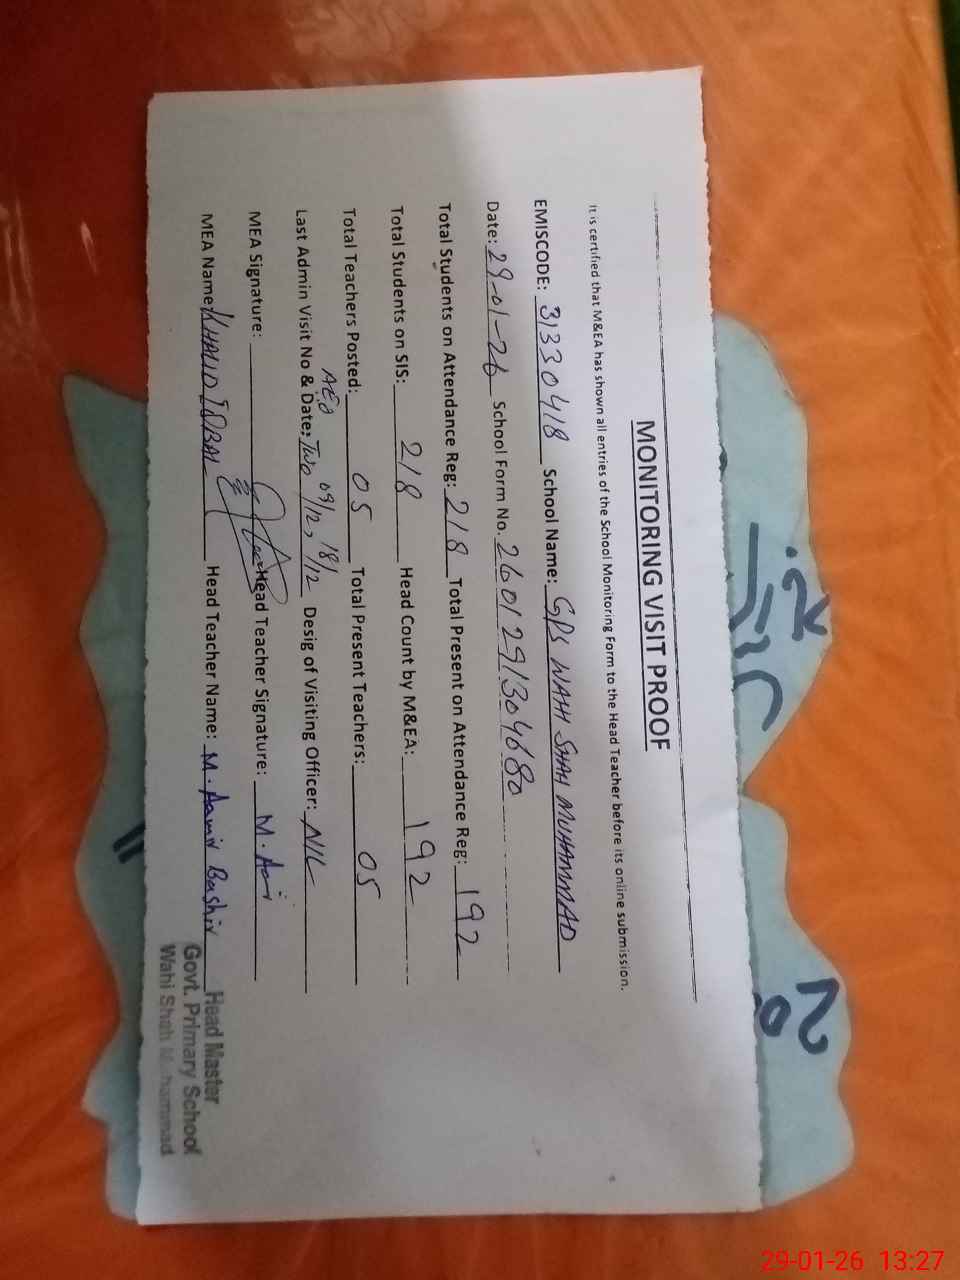 MONITORING VISIT PROOF
It is certified that M&EA has shown all entries of the School Monitoring Form to the Head Teacher before its online submission.
EMISCODE: 31330418 School Name: GPS WAHI SHAH MUHAMMAD
Date: 29-01-26 School Form No. 2601291304680
Total Students on Attendance Reg: 218 Total Present on Attendance Reg: 192
Total Students on SIS: 218 Head Count by M&EA: 192
Total Teachers Posted: 05 Total Present Teachers: 05
AEO
Last Admin Visit No & Date: Two 09/12, 18/12 Desig of Visiting Officer: NIL
MEA Signature: Head Teacher Signature: M. 
MEA Name: KHALID IQBAL Head Teacher Name: M. Aamir Bashir
Head Master
Govt. Primary School
Wahi Shah Muhammad
29-01-26 13:27